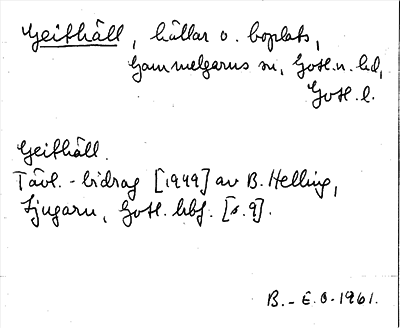 Geithäll, hällar o. boplats,
Gammelgarns sn, Gotl. n. hd,
Gotl. l.
Geithäll.
Tävl.-bidrag [1949] av B. Helling,
Ljugarn, Gotl. hbf. [s. 9].
B.-E.O. 1961.